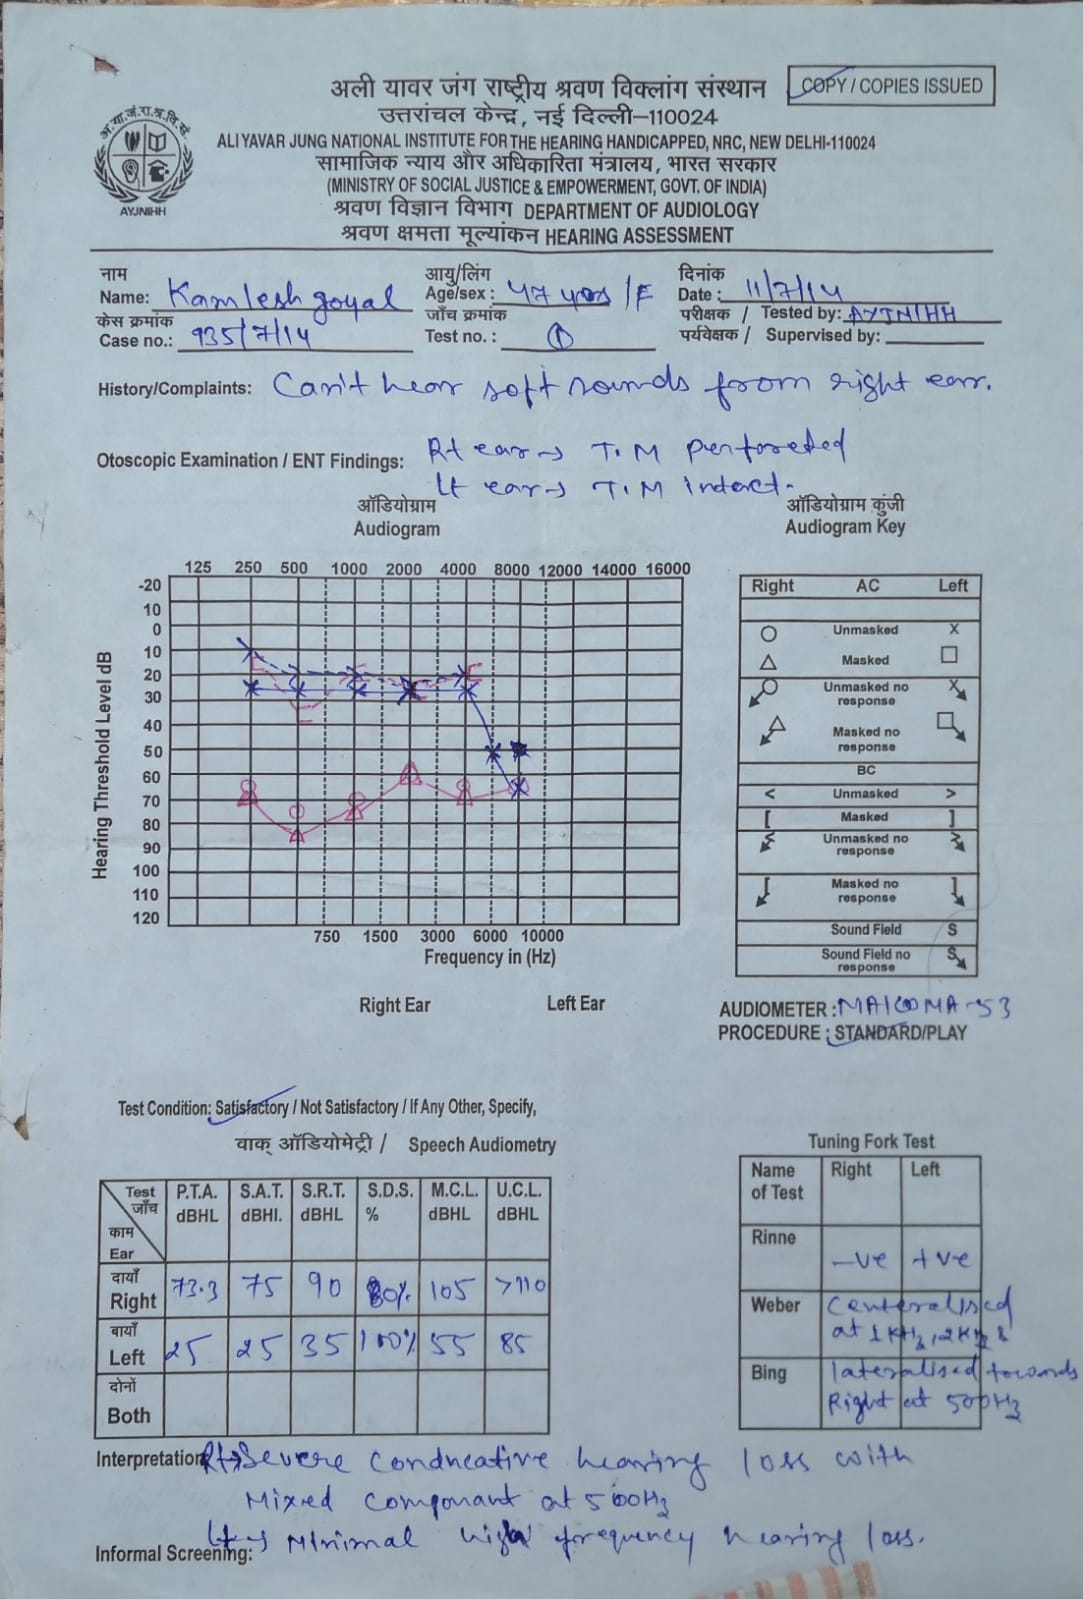 अली यावर जंग राष्ट्रीय श्रवण विकलांग संस्थान
COPY / COPIES ISSUED
उत्तरांचल केन्द्र, नई दिल्ली–110024
ALI YAVAR JUNG NATIONAL INSTITUTE FOR THE HEARING HANDICAPPED, NRC, NEW DELHI-110024
सामाजिक न्याय और अधिकारिता मंत्रालय, भारत सरकार
(MINISTRY OF SOCIAL JUSTICE & EMPOWERMENT, GOVT. OF INDIA)
श्रवण विज्ञान विभाग DEPARTMENT OF AUDIOLOGY
श्रवण क्षमता मूल्यांकन HEARING ASSESSMENT
अ.या.जं.रा.श्र.वि.सं.
AYJNIHH
नाम आयु/लिंग दिनांक
Name: Kamlesh goyal Age/sex : 47 yrs /F Date : 11/7/14
केस क्रमांक जाँच क्रमांक परीक्षक / Tested by: AYJNIHH
Case no.: 935/7/14 Test no. : 1 पर्यवेक्षक / Supervised by:
History/Complaints: Can't hear soft sounds from right ear.
Otoscopic Examination / ENT Findings: Rt ear → T.M perforeted
Lt ear → T.M intact.
ऑडियोग्राम ऑडियोग्राम कुंजी
Audiogram Audiogram Key
125 250 500 1000 2000 4000 8000 12000 14000 16000
-20
10
0
10
20
30
40
50
60
70
80
90
100
110
120
Hearing Threshold Level dB
750 1500 3000 6000 10000
Frequency in (Hz)
Right Ear Left Ear
Right AC Left
Unmasked X
Masked
Unmasked no response X
Masked no response
BC
< Unmasked >
[ Masked ]
Unmasked no response
Masked no response
Sound Field S
Sound Field no response S
AUDIOMETER : MAICO MA-53
PROCEDURE : STANDARD/PLAY
Test Condition: Satisfactory / Not Satisfactory / If Any Other, Specify,
वाक् ऑडियोमेट्री / Speech Audiometry
Test जाँच काम Ear P.T.A. dBHL S.A.T. dBHl. S.R.T. dBHL S.D.S. % M.C.L. dBHL U.C.L. dBHL
दायाँ Right 73.3 75 90 80% 105 >110
बायाँ Left 25 25 35 100% 55 85
दोनों Both
Tuning Fork Test
Name of Test Right Left
Rinne -ve +ve
Weber Centeralised at 1KHz, 2KHz &
Bing lateralised towards Right at 500Hz
Interpretation Rt → Severe conducative hearing loss with
Mixed componant at 500Hz
Lt → Minimal high frequency hearing loss.
Informal Screening: